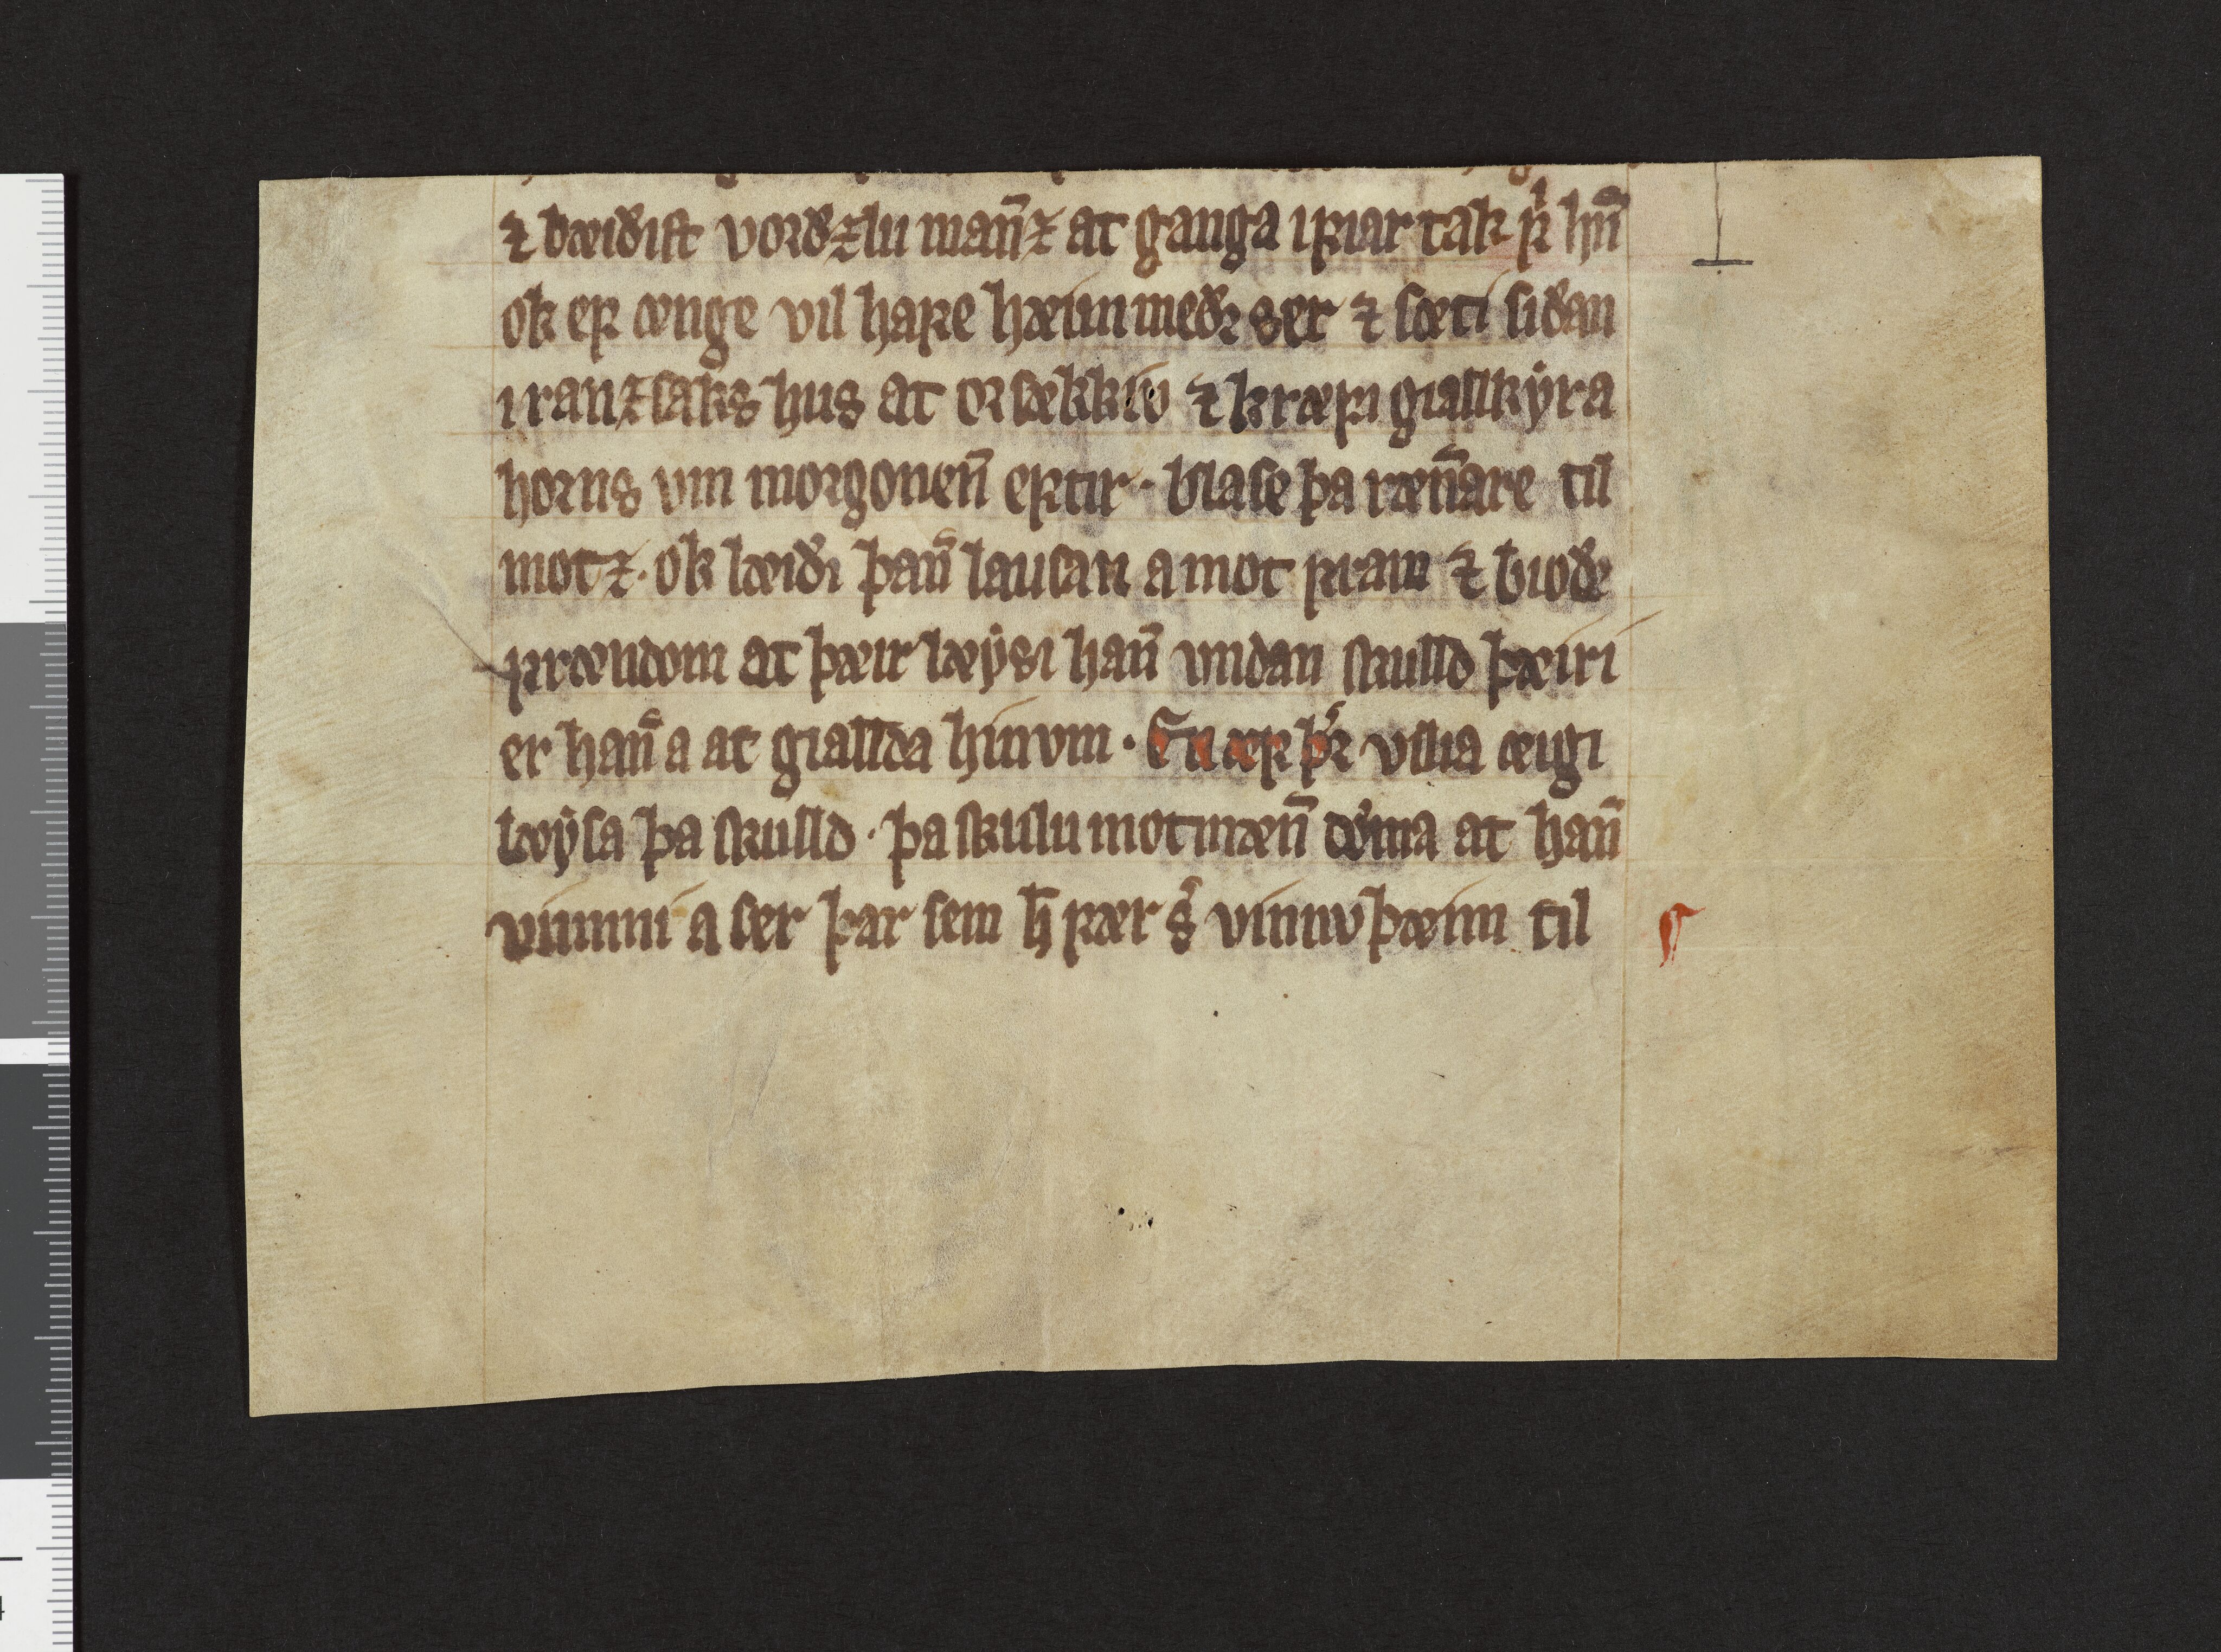 ⁊ bæiðiſt vorðꝫlu man̄ꝫ at ganga i ꝼiar tak ꝼͥ hn̄
ok eꝼ ænge vil haꝼe hæim meðꝛ ser ⁊ ſæti ſiðan
i ranꝫſaks hus at oꝛſækkiv ⁊ kræꝼi giallkyra
hoꝛns vm moꝛgonen̄ eꝼtir · blaſe þa ræn̄are til
motꝫ · ok læiði þan̄ lauſan a mot ꝼram ⁊ bioðe
ꝼrændom at þæir læysi han̄ vndan ſkulld þæiri
er han̄ a at giallda hinvm · En æꝼ þͤꝛ vilia æigi
løyſa þa ſkulld · þa ſkulu motmæn̄ døma at han̄
vinni a ſer þar ſem ħ ꝼær ẜ vinnv þæim til